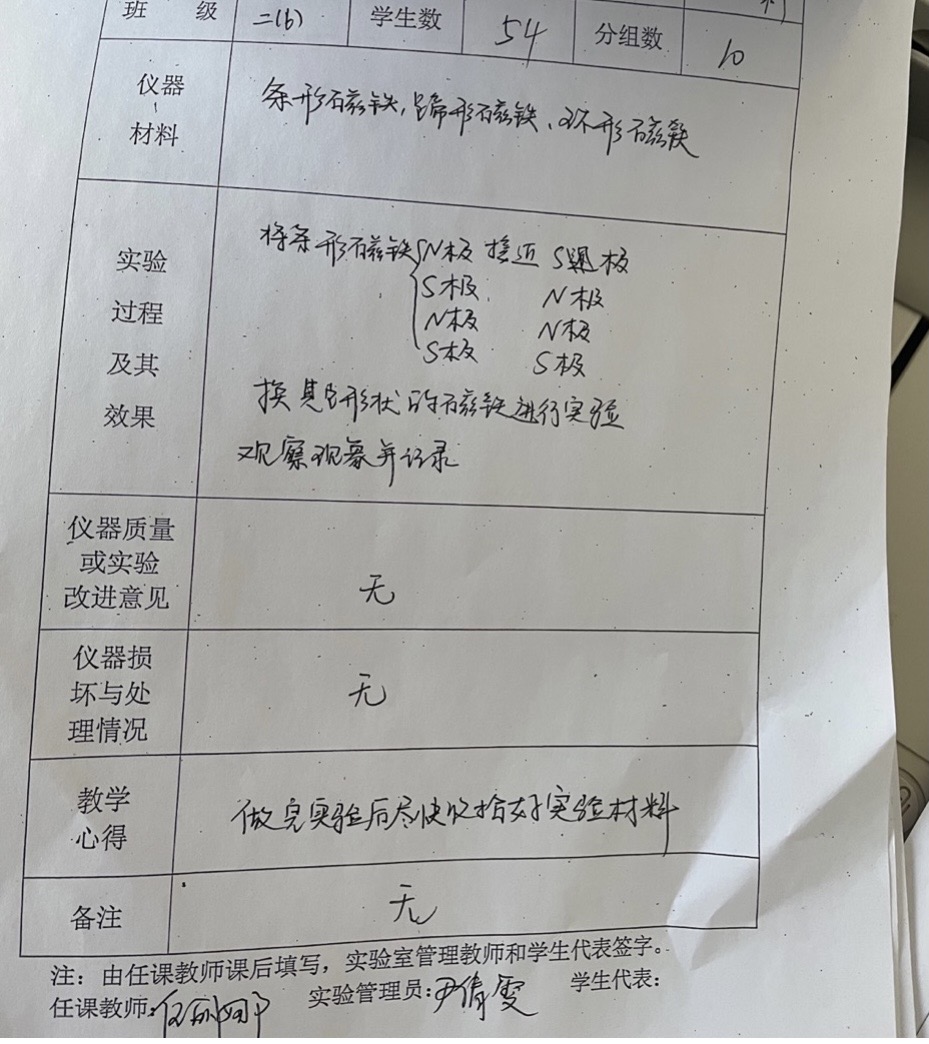 班 级 二(6) 学生数 54 分组数 10
仪器、材料 条形磁铁,蹄形磁铁、环形磁铁
实验过程及其效果
将条形磁铁 N极 接近 S极
S极 N极
N极 N极
S极 S极
换其它形状的磁铁进行实验
观察现象并记录
仪器质量
或实验
改进意见
无
仪器损
坏与处
理情况
无
教学
心得
做完实验后尽快收拾好实验材料
备注 无
注:由任课教师课后填写,实验室管理教师和学生代表签字。
任课教师: 实验管理员:尹倩雯 学生代表: